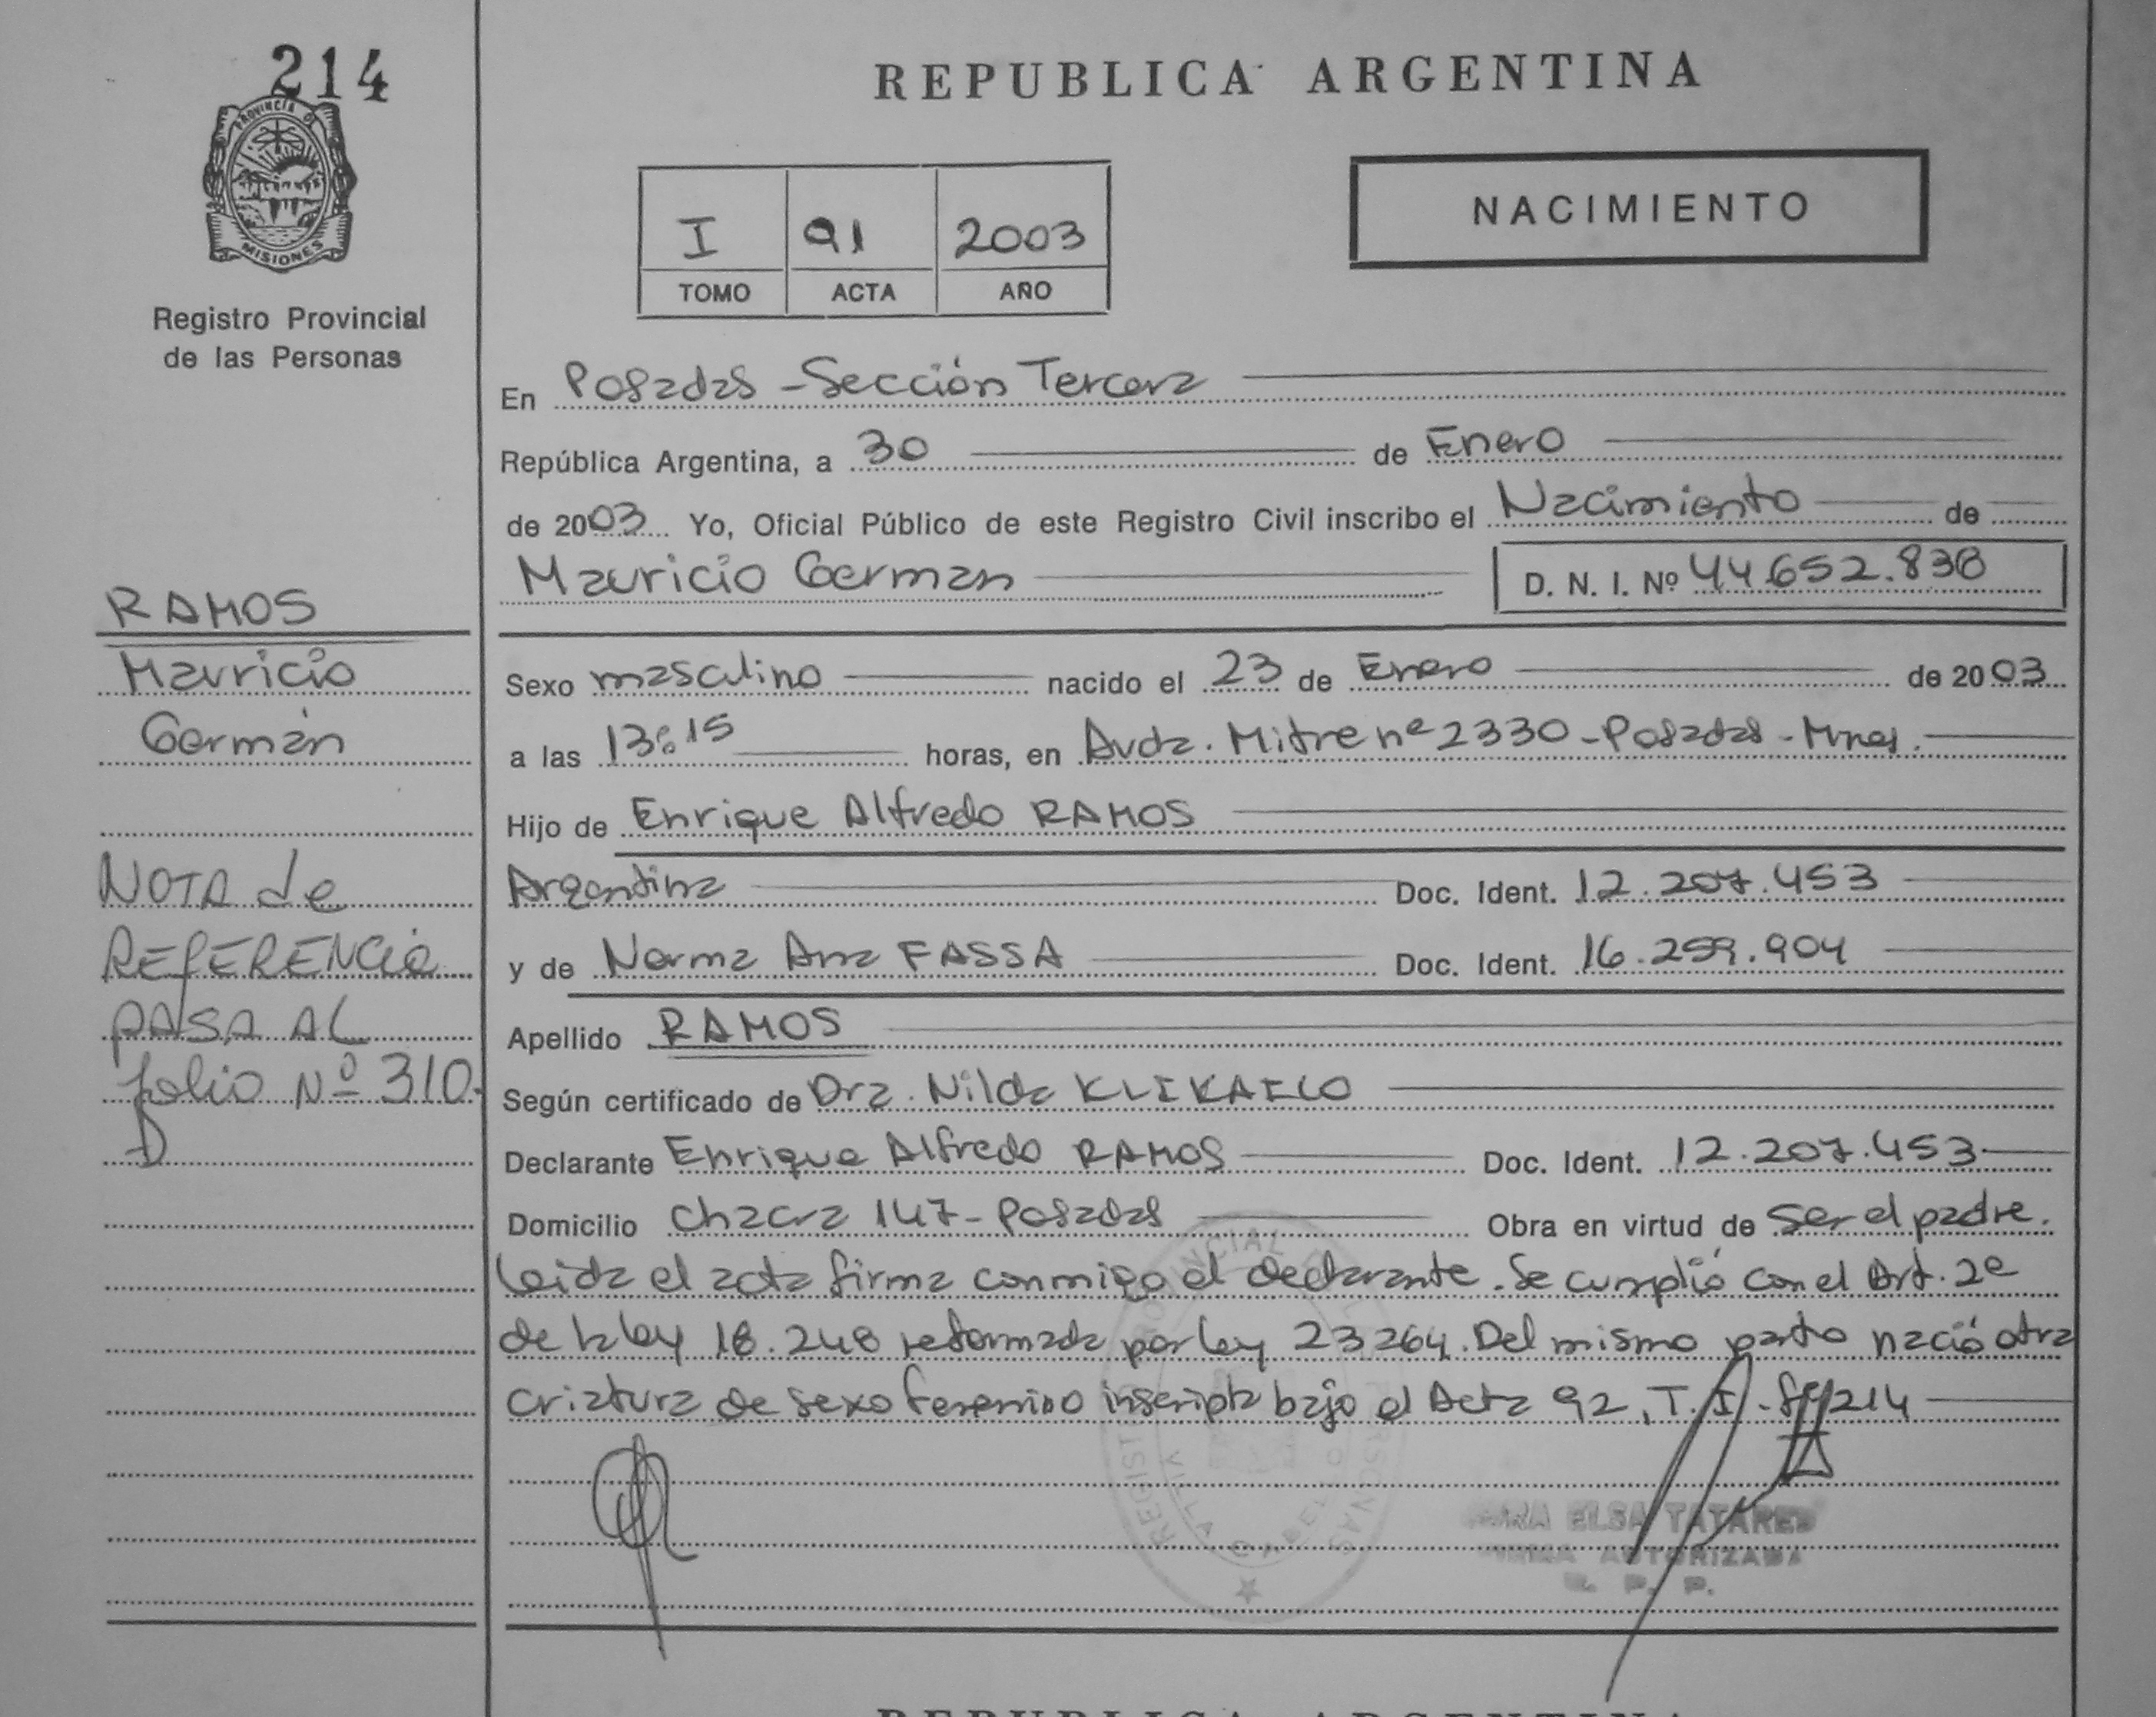 214
PROVINCIA DE
MISIONES
Registro Provincial
de las Personas
REPUBLICA ARGENTINA
I 91 2003
TOMO ACTA AÑO
NACIMIENTO
En Posadas - Sección Tercera
República Argentina, a 30 de Enero
de 2003 Yo, Oficial Público de este Registro Civil inscribo el Nacimiento de
Mauricio German D. N. I. Nº 44.652.838
RAMOS
Mauricio
Germán
NOTA de
REFERENCIA
PASA AL
folio Nº 310.
Sexo masculino nacido el 23 de Enero de 2003
a las 13:15 horas, en Avda. Mitre nº 2330 - Posadas - Mnes.
Hijo de Enrique Alfredo RAMOS
Argentina Doc. Ident. 12.207.453
y de Norma Ana FASSA Doc. Ident. 16.259.904
Apellido RAMOS
Según certificado de Dra. Nilda
Declarante Enrique Alfredo RAMOS Doc. Ident. 12.207.453
Domicilio Chacra 147 - Posadas Obra en virtud de ser el padre.
Leida el acta firma conmigo el declarante. Se cumplió con el Art. 2º
de la ley 18.248 reformada por ley 23264. Del mismo parto nació otra
criatura de sexo femenino inscripta bajo el Acta 92, T. I - Fº 214
ELSA TATAREN
FIRMA AUTORIZADA
R. P. P.
REPUBLICA ARGENTINA